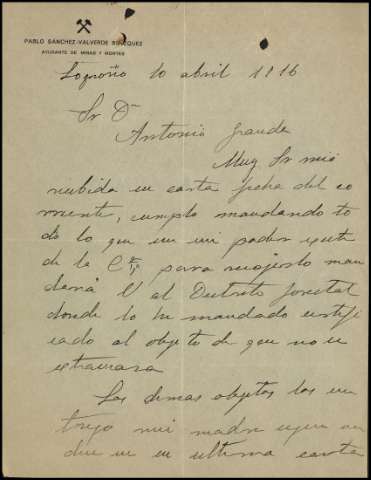 PABLO SÁNCHEZ-VALVERDE BLÁZQUEZ
AYUDANTE DE MINAS Y MONTES
Logroño 10 abril 1916
Sr Dn
Antonio Grande
Muy Sr mio
recibida su carta fecha del co
rriente, cumplo mandando to
do lo que en mi poder existe
de la Cia, para recojerlo man
dará V al Distrito forestal
donde lo he mandado certifi
cado al objeto de que no se
extraviara
Los demas objetos los en
tregó mi madre segun me
dice en su ultima carta